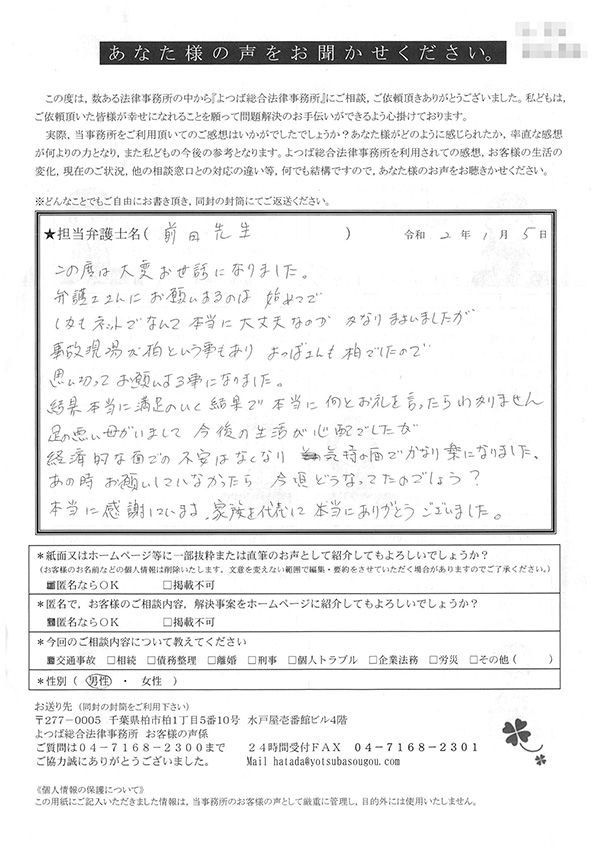 あなた様の声をお聞かせください。
この度は，数ある法律事務所の中から『よつば総合法律事務所』にご相談，ご依頼頂きありがとうございました。私どもは，
ご依頼頂いた皆様が幸せになれることを願って問題解決のお手伝いができるよう心掛けております。
実際，当事務所をご利用頂いてのご感想はいかがでしたでしょうか？あなた様がどのように感じられたか，率直な感想
が何よりの力となり，また私どもの今後の参考となります。よつば総合法律事務所を利用されての感想，お客様の生活の
変化，現在のご状況，他の相談窓口との対応の違い等，何でも結構ですので，あなた様のお声をお聴きかせください。
※どんなことでもご自由にお書き頂き，同封の封筒にてご返送ください。
★担当弁護士名( 前田先生 ) 令和 2 年 1 月 5 日
この度は大変お世話になりました。
弁護士さんにお願いするのは 始めてで
しかもネットでなんて本当に大丈夫なのか かなりまよいましたが
事故現場が柏という事もあり よつばさんも柏でしたので
思い切ってお願いする事になりました。
結果本当に満足のいく結果で本当に何とお礼を言ったらわかりません
足の悪い母がいまして 今後の生活が心配でしたが
経済的な面での不安はなくなり 気持の面でかなり楽になりました、
あの時お願いしていなかったら 今頃どうなってたのでしょう？
本当に感謝しています、家族を代表して 本当にありがとうございました。
＊紙面又はホームページ等に一部抜粋または直筆のお声として紹介してもよろしいでしょうか？
（お客様のお名前などの個人情報は削除いたします。文意を変えない範囲で編集・要約をさせていただく場合がありますのでご了承ください。）
■匿名ならＯＫ □掲載不可
＊匿名で，お客様のご相談内容，解決事案をホームページに紹介してもよろしいでしょうか？
■匿名ならＯＫ □掲載不可
＊今回のご相談内容について教えてください
■交通事故 □相続 □債務整理 □離婚 □刑事 □個人トラブル □企業法務 □労災 □その他( )
＊性別（ 男性 ・ 女性 ）
お送り先（同封の封筒をご利用下さい）
〒277-0005 千葉県柏市柏1丁目5番10号 水戸屋壱番館ビル4階
よつば総合法律事務所 お客様の声係
ご質問は04-7168-2300まで 24時間受付FAX 04-7168-2301
ご協力誠にありがとうございました。 Mail hatada@yotsubasougou.com
《個人情報の保護について》
この用紙にご記入いただきました情報は，当事務所のお客様の声として厳重に管理し，目的外には使用いたしません。